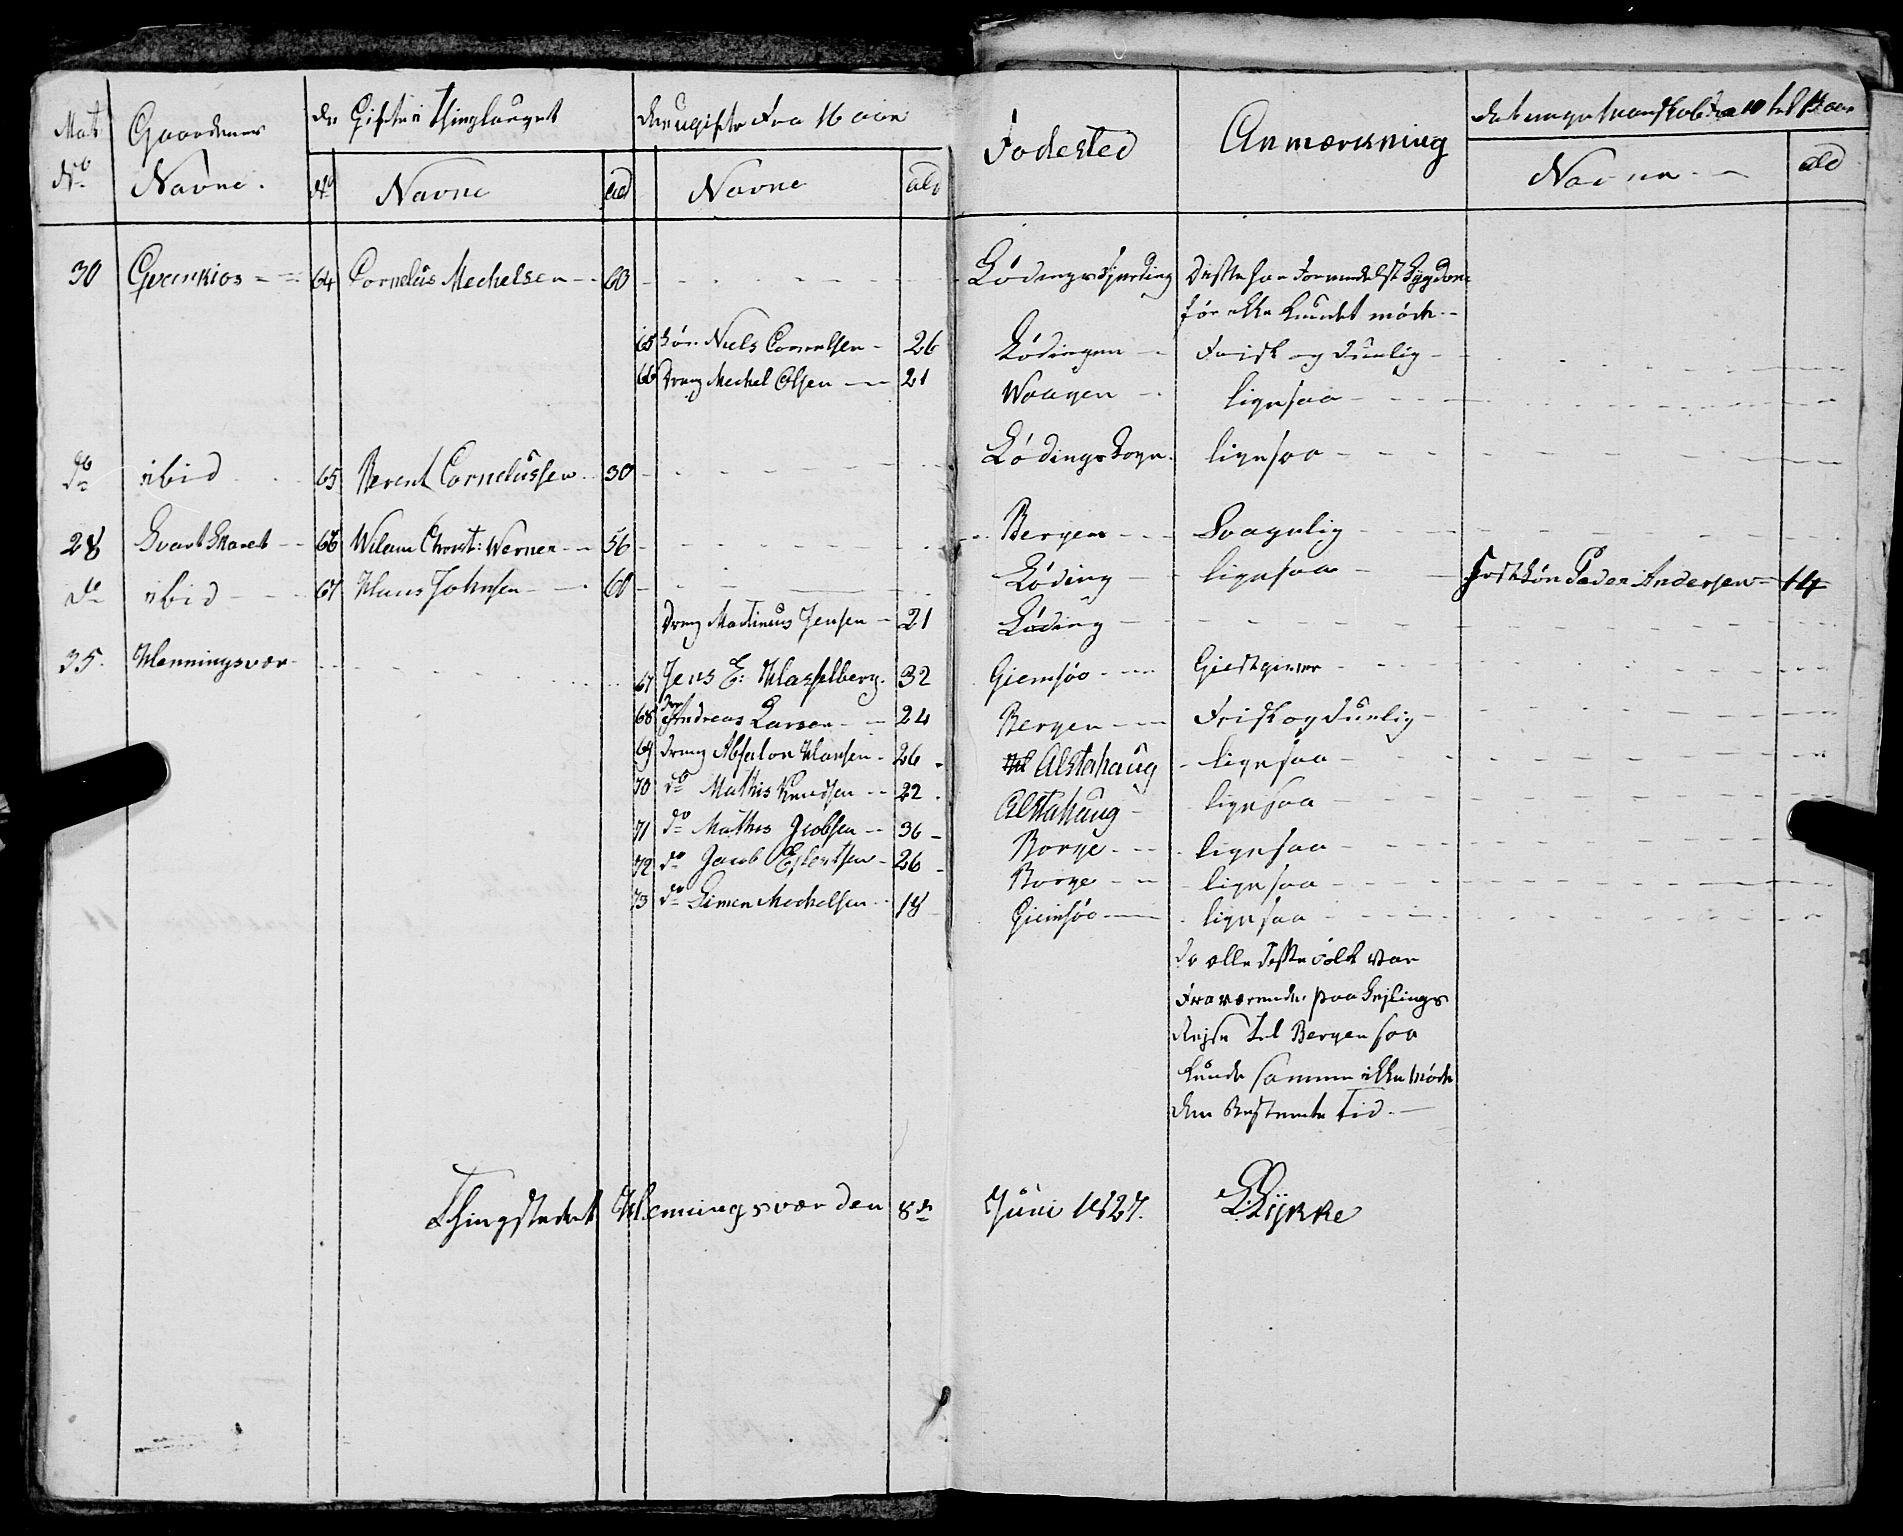 Mat No Gaardenes Navne. De Gifte i Thinglauget Den ugifte Fra 16 aar Fødested Anmærkning Det unge Mandskab Fra 10 til 16 aar
No Navne ald Navne ald Navne ald
30 Gvarnkios 64 Cornelius Mechelsen 60 Lødingsfjerding Disse har formedelst Sygdom
før ikke kundet møde.
65 Søn Niels Cornelsen 26 Lødingen Frisk og Duelig
66 Dreng Mechel Olsen 21 Waagen ligesaa
do ibid 65 Berent Corneliussen 30 Lødings Sogn ligesaa
28 Svartskaret 66 Wilum Christ: Werner 56 Bergen Svagelig
do ibid 67 Hans Johnsen 60 Løding ligesaa Fostersøn Peder Andersen 14
Dreng Martinus Jensen 21 Løding
35. Henningsvær 67 Jens E: Hasselberg 32 Giemsøe Giestgiver
68 Andreas Larsen 24 Bergen Frisk og Duelig
69 Dreng Absalon Hansen 26 Alstahaug ligesaa
70 do Mathis Knudsen 22 Alstahaug ligesaa
71 do Mathis Jcobsen 36 Borge ligesaa
72 do Jacob Ejlertsen 26 Borge ligesaa
73 do Simen Mechelsen 18 Giemsøe ligesaa
Da alle disse folk var
Fraværende paa Sejlings
Rejse til Bergen saa
kunde samme ikke møde
den Bestemte Tid.
Thingstedet Henningsvær den 8de Juni 1827. Lykke